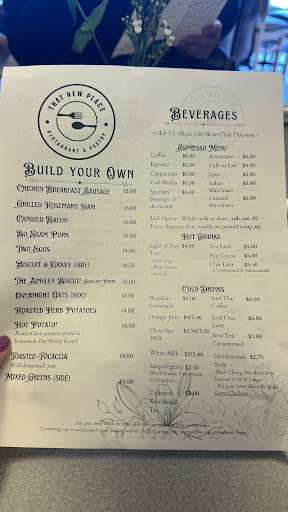 THAT NEW PLACE
RESTAURANT & PASTRY
Build your Own
Chicken Breakfast Sausage $6.00
Grilled Rosemary Ham $6.00
Candied Bacon $6.00
Bo Ssam Pork $6.00
Two Eggs $4.00
Biscuit & Gravy (side) $6.50
The Ainsley Biscuit $5.00
Overnight Oats (side) $5.00
Roasted Herb Potatoes $4.00
Hot Potato! $5.00
Roasted herb potatoes tossed in
homemade Hot Honey Ranch
Toasted Focaccia $4.00
With homemade jam
Mixed Greens (side) $4.00
Beverages
~ Ask Us About Our Brew Club Discount ~
Espresso Menu
Coffee $4.00 Americano $4.50
Espresso $3.50 Café au Lait $4.50
Cappuccino $5.00 Latte $5.00
Café Mocha $5.50 Italian $5.00
Specialty $6.00 Macchiato
beverage of Caramel $6.00
the month Macchiato
Milk Option: Whole milk or skim ..sub oat .95
Extra: Espresso shot, vanilla or caramel syrup .95
Hot Drinks
Light of Day $4.00 Tea Latte $5.00
Teas Hot Cocoa $5.00
-Earl Grey Chai Latte $5.50
-Unsweetened & Homemade
Cold Drinks
Brazilian $5.00 Iced Thai $6.00
Lemonade Coffee
Orange Juice $4/5.00 Iced Chai $6.00
Latte
Chocolate $2.50/3.50 Iced Tea $5.00
Milk Unsweetened
White Milk $2/3.00 Northwoods $2.75
Soda
Sanpellegrino $2.50 -Black Cherry, Diet Root Beer,
Blood Orange, Pomegranate Seasonal or Wild Ginger
or Grapefruit
Cultured $5.00
Kombucha
Tea